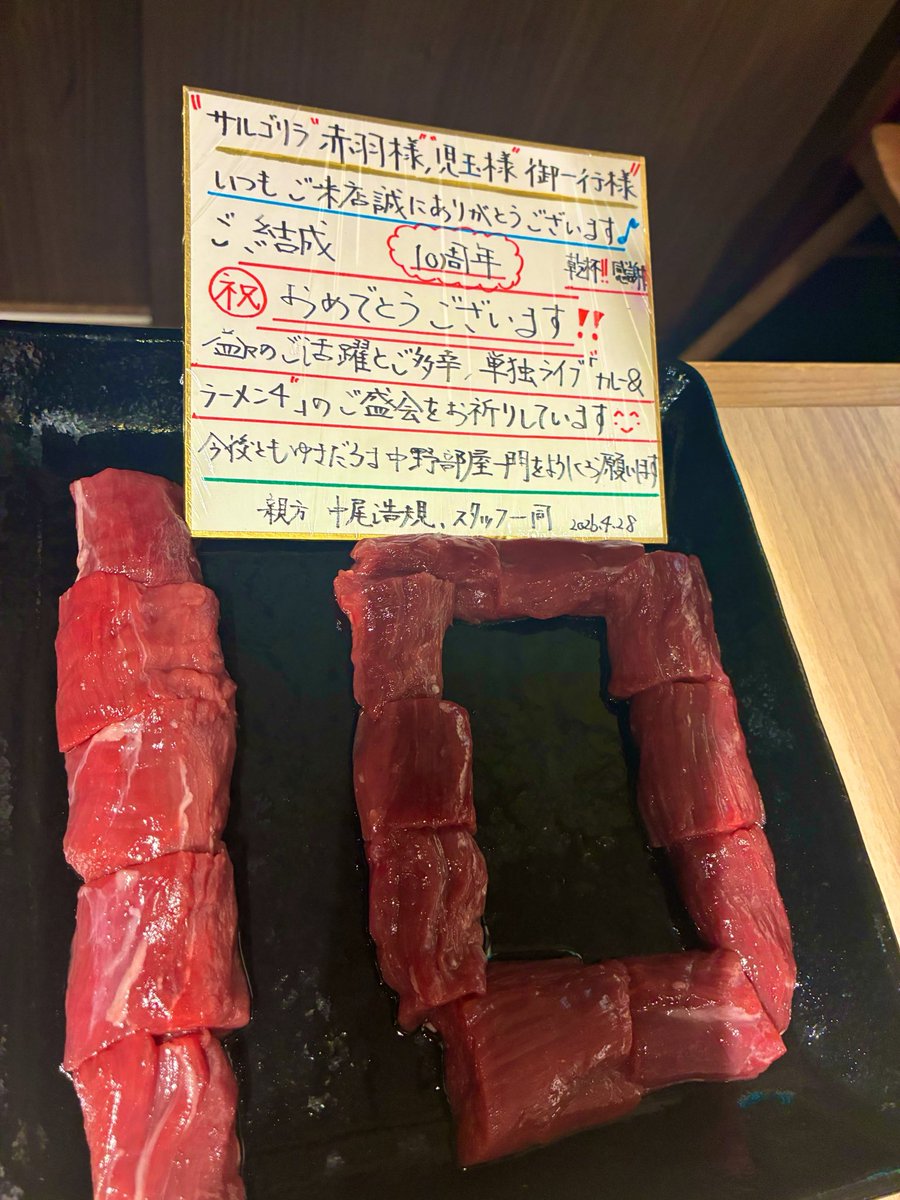 "サルゴリラ"赤羽様","児玉様"御一行様"
いつもご来店誠にありがとうございます♪
ご結成 10周年 乾杯!! 感謝
祝 おめでとうございます!!
益々のご活躍とご多幸、単独ライブ「カレー&
ラーメン4」のご盛会をお祈りしています
今後ともゆきだるま中野部屋一門をよろしくお願います
親方 中尾浩規、スタッフ一同 2026.4.28